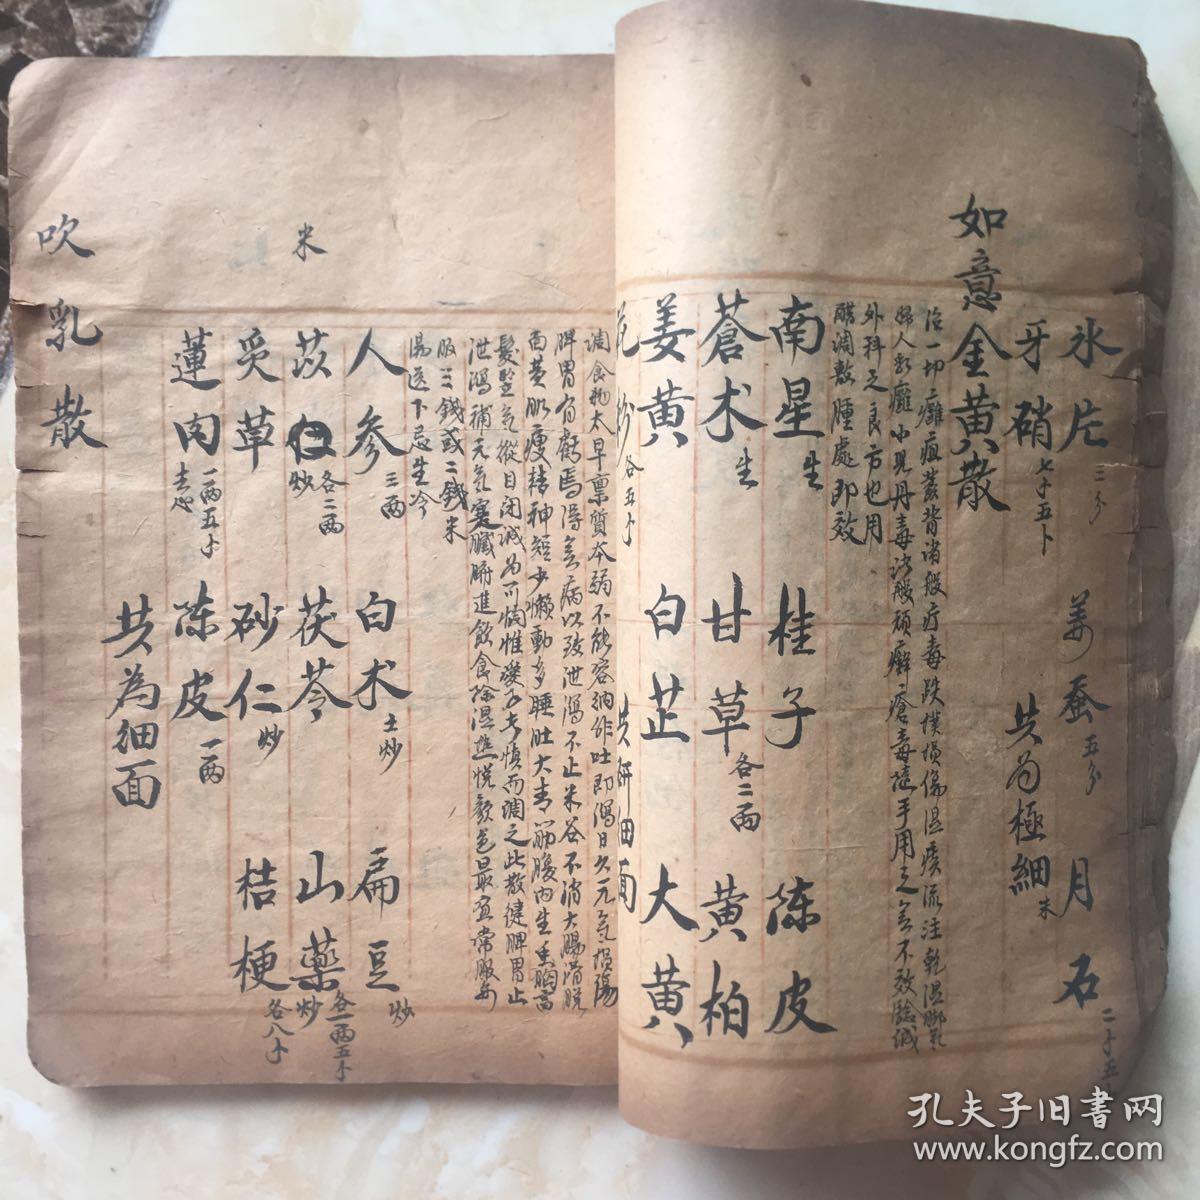 氷片 二分 姜蚕 五分 月石 二卜五卜
牙硝 七卜五卜 共为極細末
如意金黄散
治一切癰疽發背諸般疔毒跌撲損傷湿痰流注乾湿脚氣
婦人乳癰小児丹毒 瘡毒隨手用之無不效 誠
外科之良方也用
醋調敷腫處即效
南星 生 桂子 陈皮
蒼术 生 甘草 各二两 黄柏
姜黄 白芷 大黄
花粉 各五卜 共研细面
調食物太早禀質本弱不能容納作吐即瀉日久元氣損傷
脾胃有虧 病以致泄瀉不止米谷不消大腸滑脱
面黄肌瘦精神短少懶動多睡肚大青筋腹内生 胸高
髮竪 從目闭诚为可惻惟 慎而調之此散健脾胃止
泄瀉補元氣寔臓腑進飲食除湿 悦顔色最宜常服每
服三錢或二錢米
湯送下忌生冷
米
人參 三两 白术 土炒 扁豆 炒
苡仁 炒 各二两 茯苓 山藥 炒 各一两五卜
炙草 砂仁 炒 桔梗 各八卜
蓮肉 去心 一两五卜 陈皮 一两
共為细面
吹乳散
孔夫子旧書网
www.kongfz.com